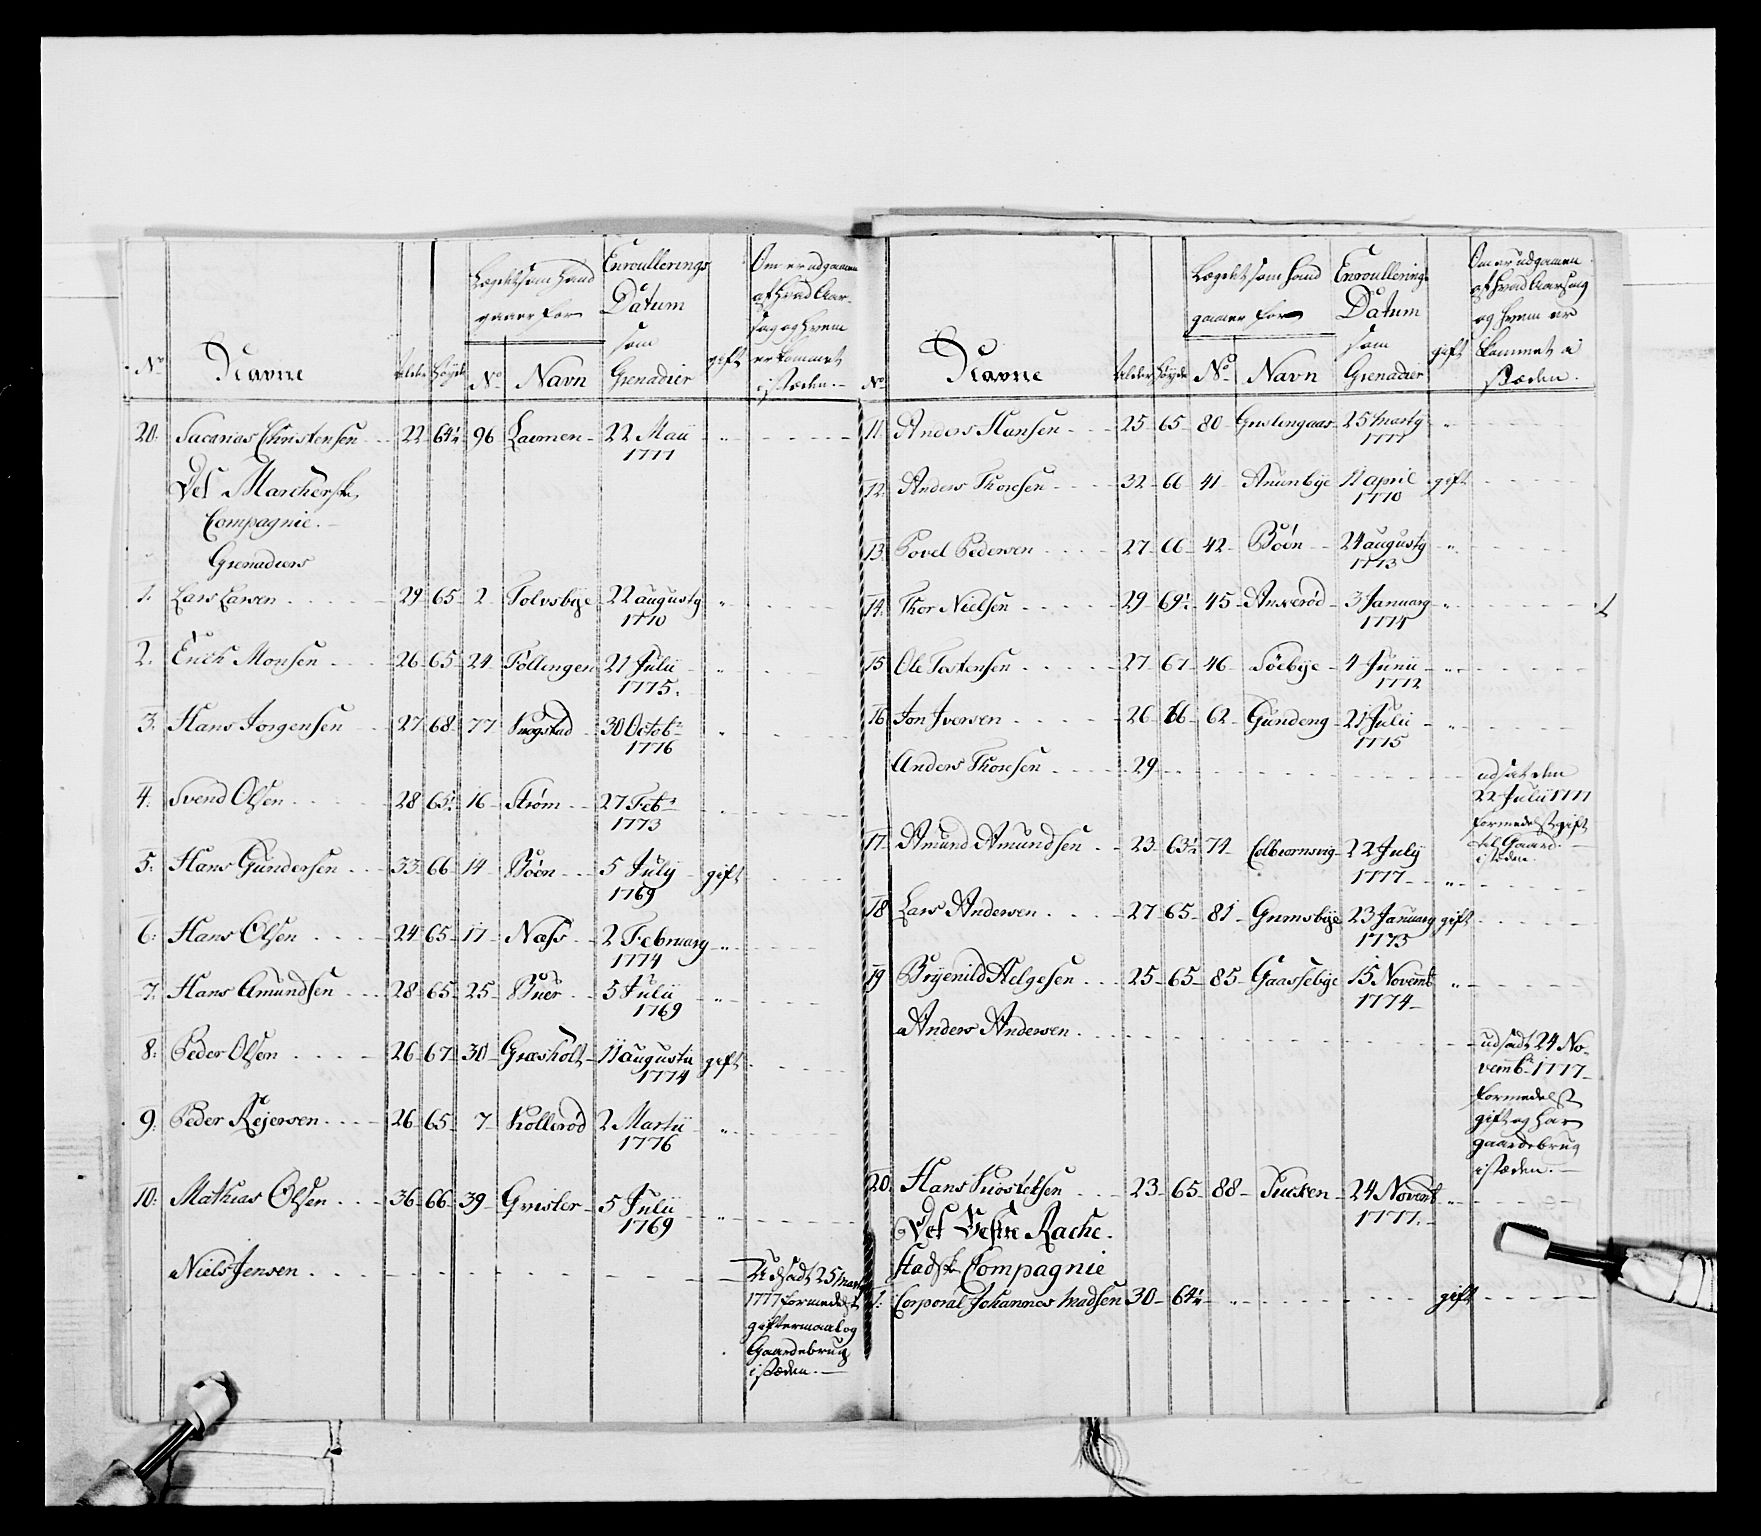 No
Navne
alder
Høyde
Lægdet som hand
gaaer for
No
Navn
Enroullerings
Datum
som
Grenadier
gift
Om er udgaaen
af hvad Aar-
sag og hvem
er kommet
i stæden.
20. Sacarias Christensen 22 64½ 96 Laemen 22 Maii „
1777
Det Marcherske
Compagnie.
Grenadiers
1. Lars Larsen 29 65 2 Tolvsbye 22 augusty „
1770
2. Erich Monsen 26 65 24 Föllingen 21 Julii „
1775.
3. Hans Jorgensen 27 68 77 Krogstad 30 Octobr „
1776
4. Svend Olsen 28 65½ 16 Strøm 27 Febr „
1773
5. Hans Gundersen 33 66 14 Böön 5 July gift
1769
6. Hans Olsen 24 65 17 Næss 2 February „
1774
7. Hans Amundsen 28 65 25 Buer 5 Julii „
1769
8. Peder Olsen 26 67 30 Græsholt 11 augustii gift
1774
9. Peder Rejersen 26 65 7 Kollerød 2 Martii „
1776
10. Mathias Olsen 36 66 39 Grister 5 Julii „
1769
Niels Jensen
Udsadt 25 Marty
1777 formedelst
giftermaal og
Gaardebrug
i stæden.
No
Navne
alder
Høyde
Lægdet som hand
gaaer for
No
Navn
Enroullerings
Datum
som
Grenadier
gift
Om er udgaaen
af hvad Aarsag
og hvem er
kommet i
stæden.
11 Anders Hansen 25 65 80 25 Marty „
1777
12. Anders Thoresen 32 66 41 Anunbye 11 april gift
1770
13. Povel Pedersen 27 66 42 Böön 24 augusty „
1773
14. Thor Nielsen 29 69½ 45 Ankerød 3 January „
1775
15 Ole Tostensen 27 67 46 Söebye 4 Junii „
1772
16 Jon Iversen 26 66 62 Gundeng 21 Julii „
1775
Anders Thoresen 29
udsat den
22 Julii 1777
formedelst gift
til Gaard
i stæden.
17 Amund Amundsen 23 63½ 74 Colbiornsvig 22 July
1777 „
18 Lars Andersen 27 65 81 Grimsbye 23 January gift
1775
19 Bryenild Helgesen 25 65 85 Gaassebye 15 Novemb „
1774
Anders Andersen
udsadt 24 No-
vembr 1777
formedelst
gift og har
gaardebrug
i stæden.
20. Hans 23 65 88 24 Novemb „
1777.
Det Vestre Rache-
stadske Compagnie
1. Corporal Johannes Madsen 30 64½ „ gift